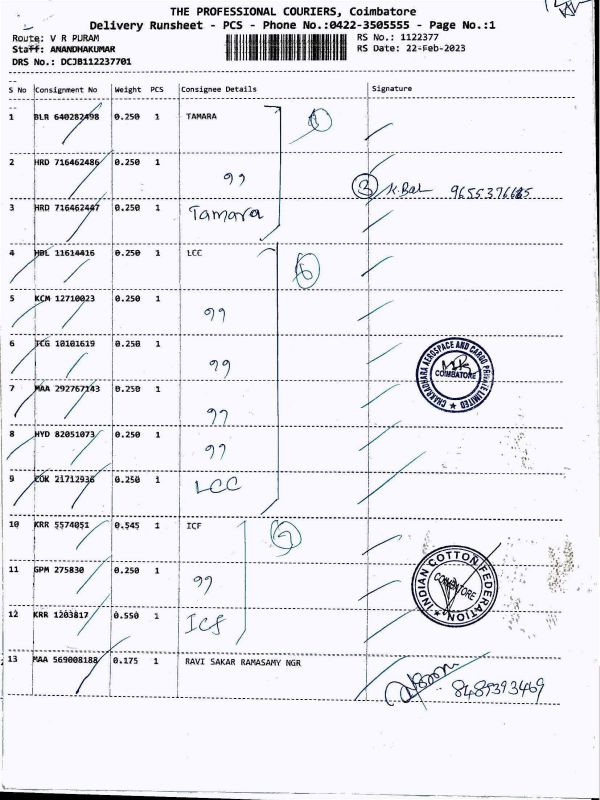 THE PROFESSIONAL COURIERS, Coimbatore
Delivery Runsheet - PCS - Phone No.:0422-3505555 - Page No.:1
Route: V R PURAM RS No.: 1122377
Staff: ANANDHAKUMAR RS Date: 22-Feb-2023
DRS No.: DCJB112237701
S No Consignment No Weight PCS Consignee Details Signature
1 BLR 640282498 0.250 1 TAMARA
2 HRD 716462486 0.250 1 ,,
3 K.Bal
3 HRD 716462447 0.250 1 Tamara
4 HBL 11614416 0.250 1 LCC 6
5 KCM 12710023 0.250 1 ,,
6 TCG 10101619 0.250 1 ,,
CHAKRADHARA AEROSPACE AND CARGO PRIVATE LIMITED COIMBATORE
7 MAA 292767143 0.250 1 ,,
8 HYD 82051073 0.250 1 ,,
9 COK 21712936 0.250 1 LCC
10 KRR 5574051 0.545 1 ICF
11 GPM 275830 0.250 1 ,,
INDIAN COTTON FEDERATION COIMBATORE
12 KRR 1203817 0.550 1 ICF
13 MAA 569008188 0.175 1 RAVI SAKAR RAMASAMY NGR
8489393469